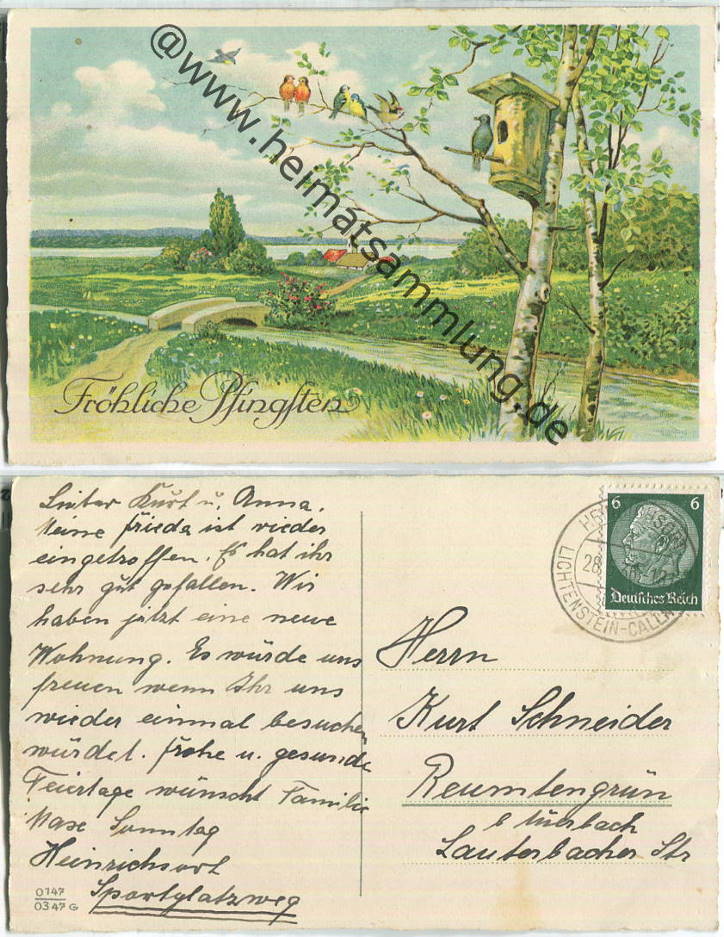 @www.heimatsammlung.de
Fröhliche Pfingsten
Lieber Kurt u. Anna.
Meine Frieda ist wieder
eingetroffen. Es hat ihr
sehr gut gefallen. Wir
haben jetzt eine neue
Wohnung. Es würde uns
freuen wenn Ihr uns
wieder einmal besuchen
würdet. Frohe u. gesunde
Feiertage wünscht Familie
Max Sonntag
Heinrichsort
Sportplatzweg
0147
0347 G
6 6
Deutsches Reich
28
LICHTENSTEIN-CALLN
Herrn
Kurt Schneider
Reumtengrün
b Auerbach
Lauterbacher Str